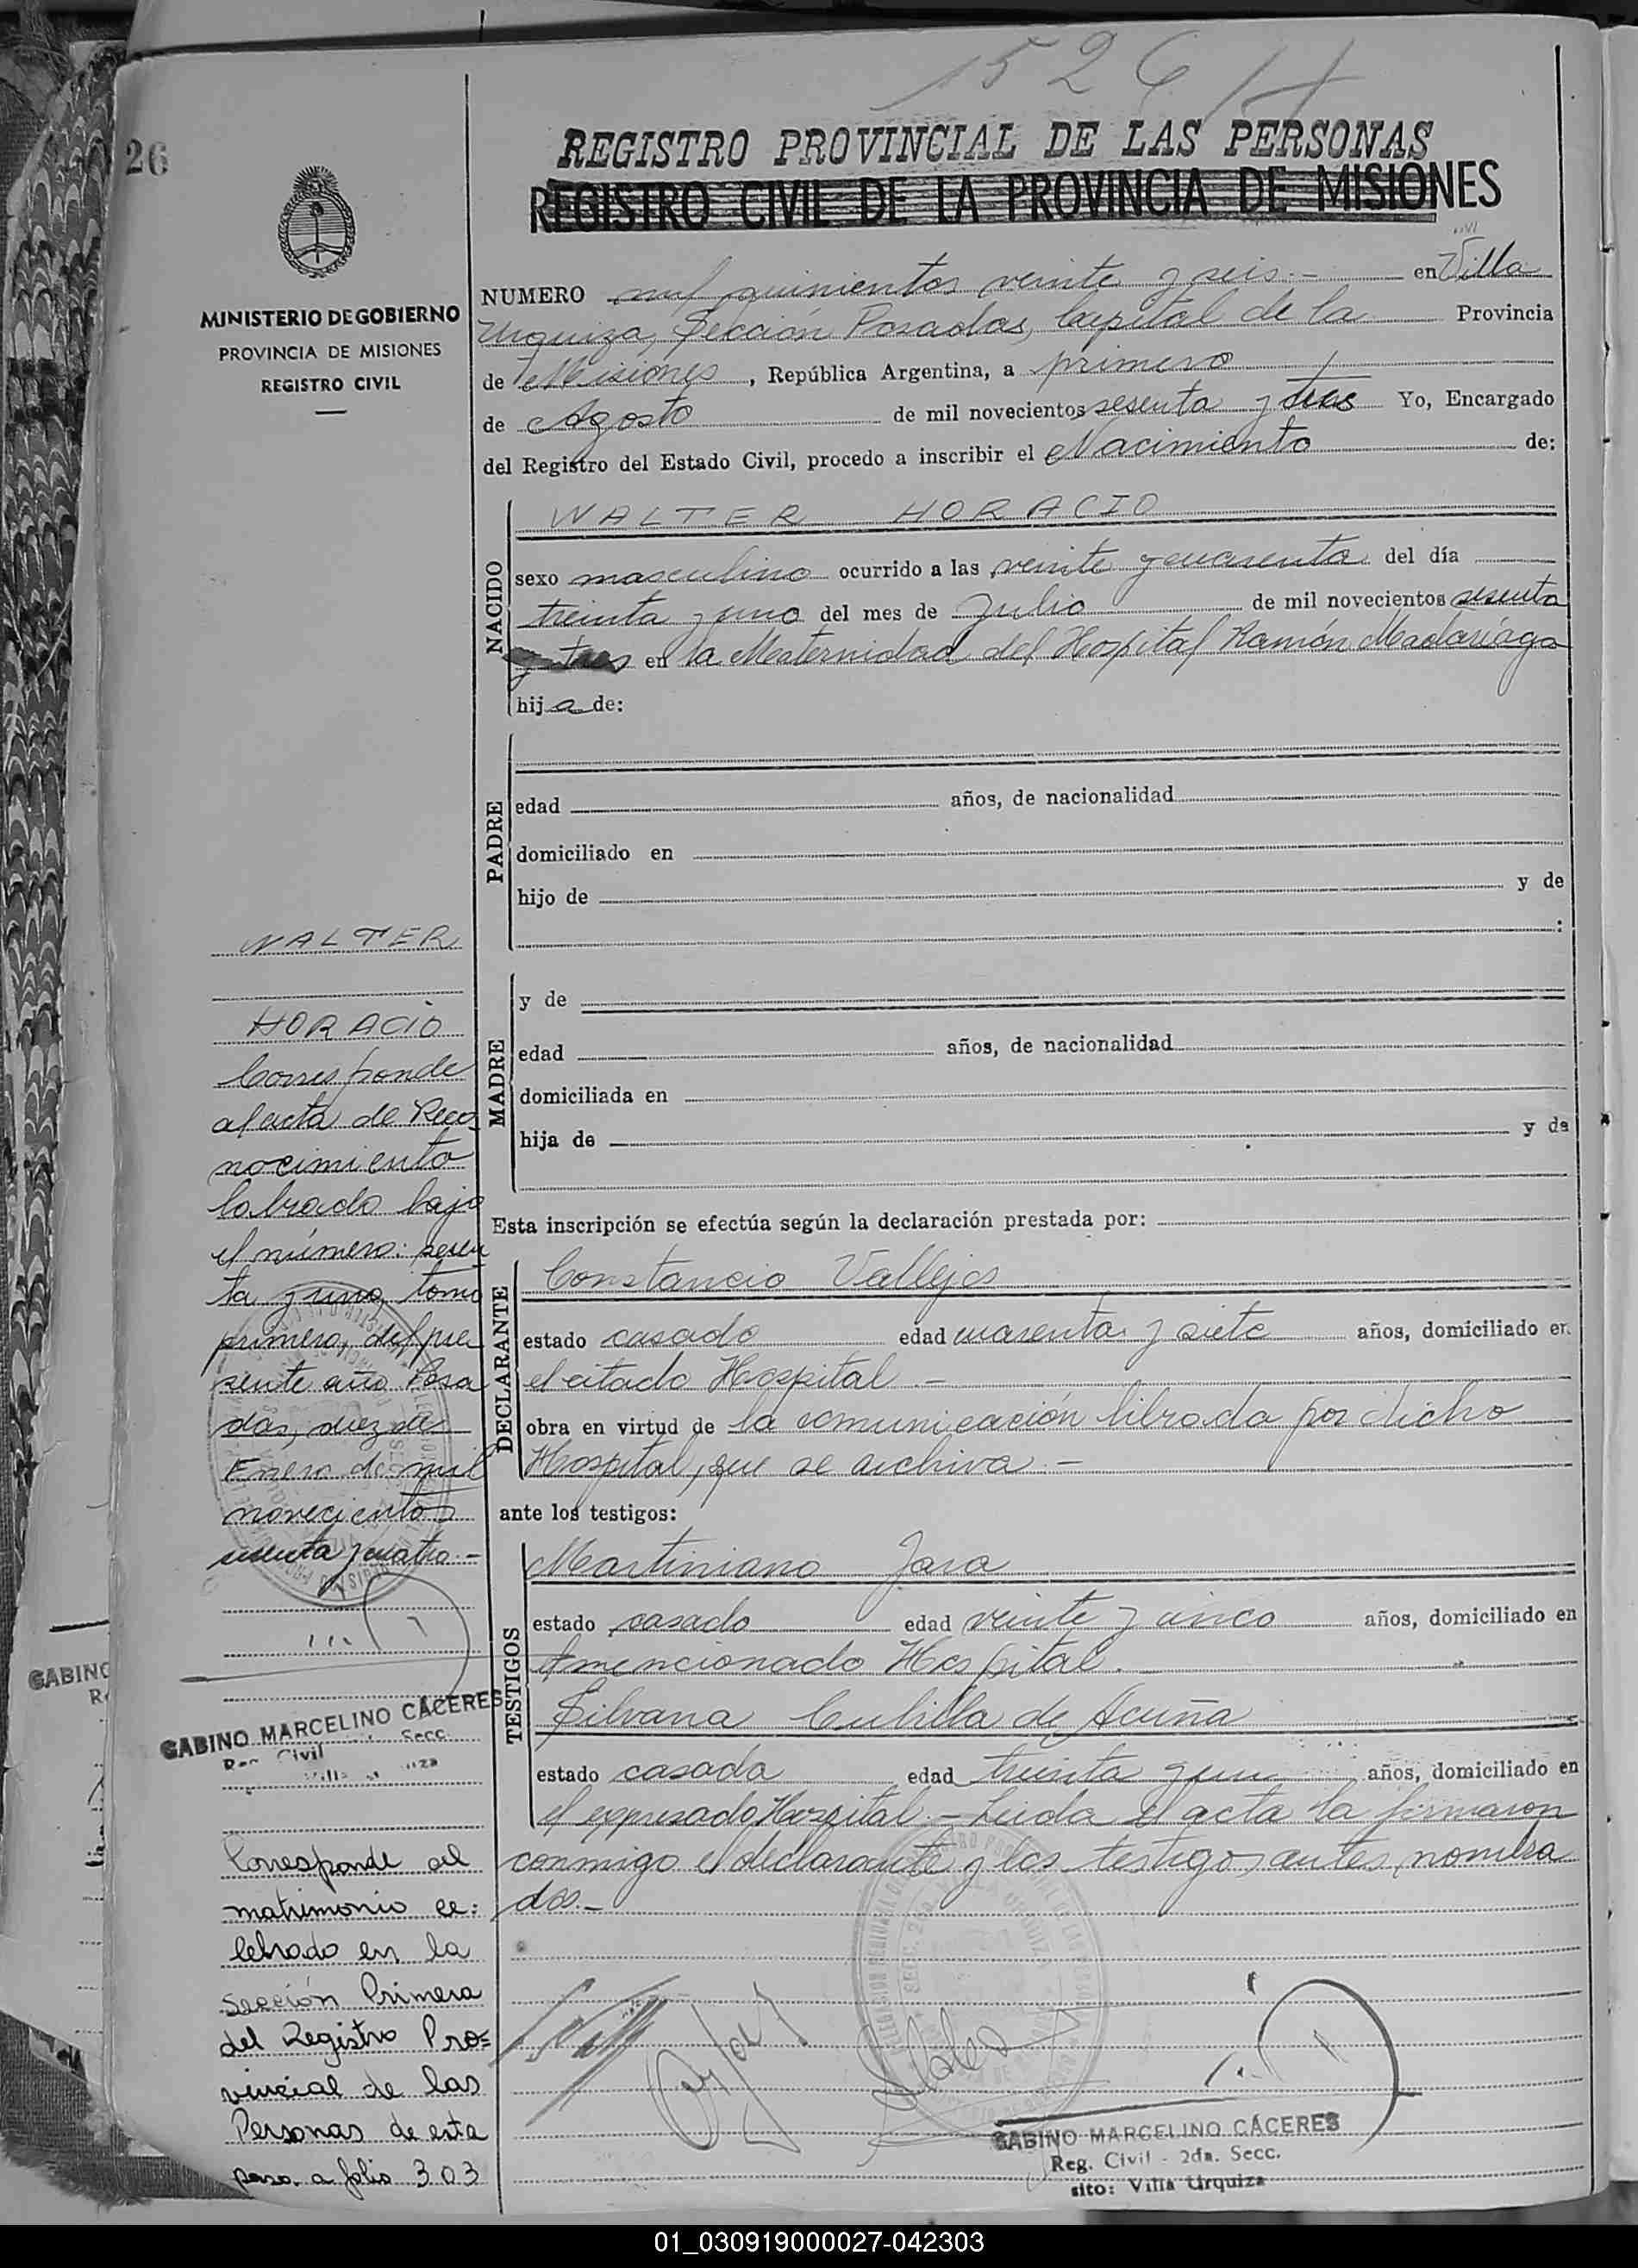 1526
26
REGISTRO PROVINCIAL DE LAS PERSONAS
REGISTRO CIVIL DE LA PROVINCIA DE MISIONES
MINISTERIO DE GOBIERNO
PROVINCIA DE MISIONES
REGISTRO CIVIL
NUMERO mil quinientos veinte y seis.- en Villa
Urquiza, Sección Posadas, Capital de la Provincia
de Misiones, República Argentina, a primero
de Agosto de mil novecientos sesenta y tres Yo, Encargado
del Registro del Estado Civil, procedo a inscribir el Nacimiento de:
NACIDO
WALTER HORACIO
sexo masculino ocurrido a las veinte y cuarenta del día
treinta y uno del mes de Julio de mil novecientos sesenta
y tres en la Maternidad del Hospital Ramón Madariaga
hija de:
PADRE
edad años, de nacionalidad
domiciliado en
hijo de y de
:
MADRE
y de
edad años, de nacionalidad
domiciliada en
hija de y de
Esta inscripción se efectúa según la declaración prestada por:
DECLARANTE
Constancio Vallejos
estado casado edad cuarenta y siete años, domiciliado en
el citado Hospital.-
obra en virtud de la comunicación librada por dicho
Hospital, que se archiva.-
ante los testigos:
TESTIGOS
Martiniano Jara
estado casado edad veinte y cinco años, domiciliado en
el mencionado Hospital.
Silvana Cubilla de Acuña
estado casada edad treinta y un años, domiciliado en
el expresado Hospital.- Leida el acta la firmaron
conmigo el declarante y los testigos antes nombra
dos.-
GABINO MARCELINO CÁCERES
Reg. Civil - 2da. Secc.
sito: Villa Urquiza
WALTER
HORACIO
Corresponde
al acta de Reco
nocimiento
labrada bajo
el número: sesen
ta y uno, tomo
primero, del pre
sente año Posa
das, diez de
Enero de mil
novecientos
sesenta y cuatro.-
GABINO MARCELINO CÁCERES
Reg. Civil Secc.
Corresponde al
matrimonio ce:
lebrado en la
Sección Primera
del Registro Pro=
vincial de las
Personas de esta
pasa a folio 303
GABINO
01_030919000027-042303